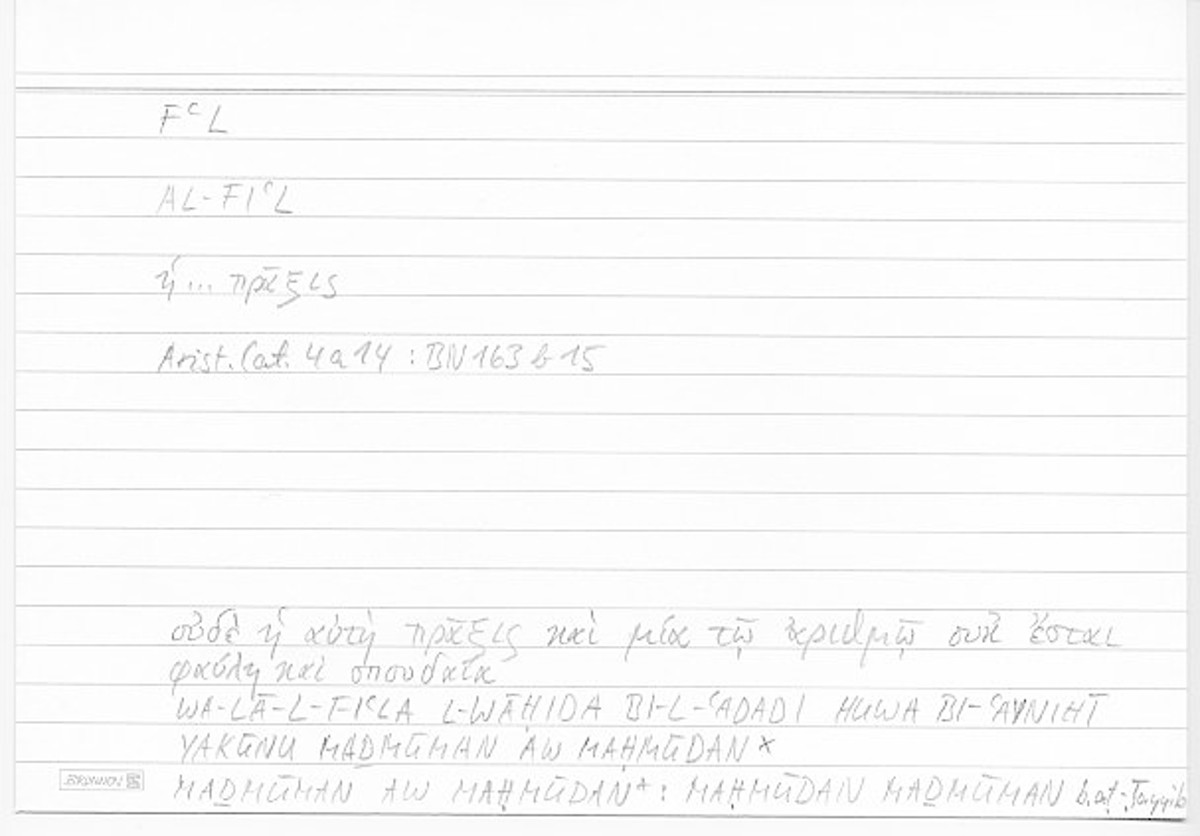 FᶜL
AL-FIᶜL
ἡ... πρᾶξις
Arist. Cat. 4a14 : BN 163 b 15
οὐδὲ ἡ αὐτὴ πρᾶξις καὶ μία τῷ ἀριθμῷ οὐκ ἔσται
φαύλη καὶ σπουδαία
WA-LĀ-L-FIᶜLA L-WĀḤIDA BI-L-ᶜADADI HUWA BI-ᶜAYNIHĪ
YAKŪNU MAḎMŪMAN AW MAḤMŪDAN*
MAḎMŪMAN AW MAḤMŪDAN* : MAḤMŪDAN MAḎMŪMAN b. aṭ-Ṭayyib
BRUNNEN